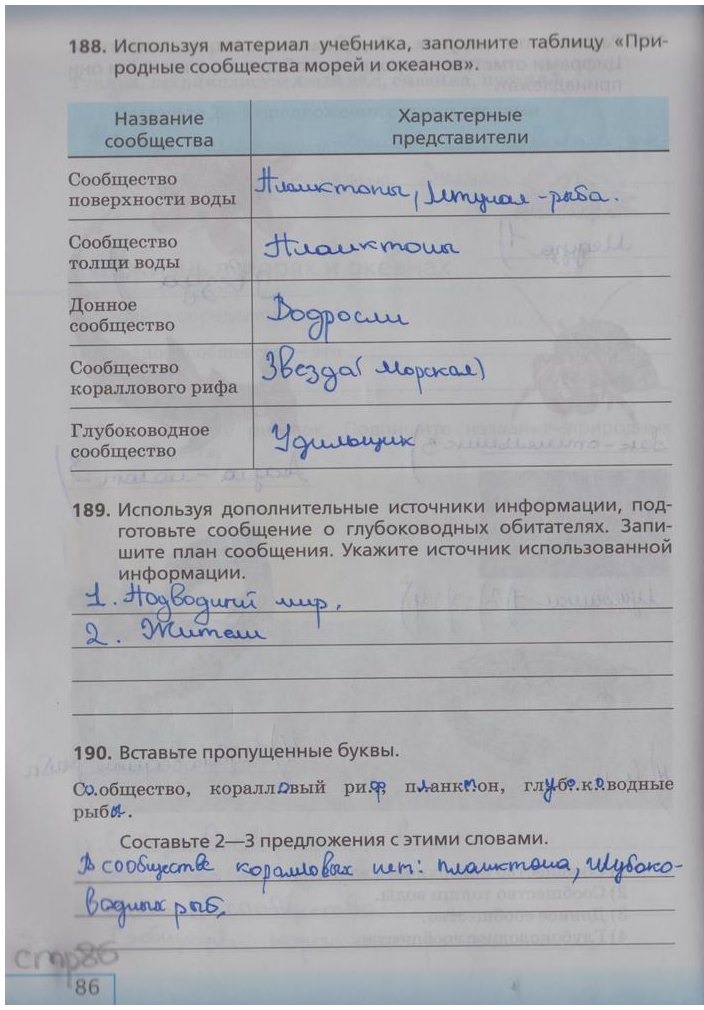 188. Используя материал учебника, заполните таблицу «При-
родные сообщества морей и океанов».
Название
сообщества
Характерные
представители
Сообщество
поверхности воды
Планктоны, Летучая-рыба.
Сообщество
толщи воды
Планктоны
Донное
сообщество
Водросли
Сообщество
кораллового рифа
Звезда (Морская)
Глубоководное
сообщество
Удильщик
189. Используя дополнительные источники информации, под-
готовьте сообщение о глубоководных обитателях. Запи-
шите план сообщения. Укажите источник использованной
информации.
1. Подводный мир.
2. Жители
190. Вставьте пропущенные буквы.
Сообщество, коралловый риф, планктон, глубоководные
рыбы.
Составьте 2—3 предложения с этими словами.
В сообществе коралловых нет: планктона, глубоко-
водных рыб.
стр86
86